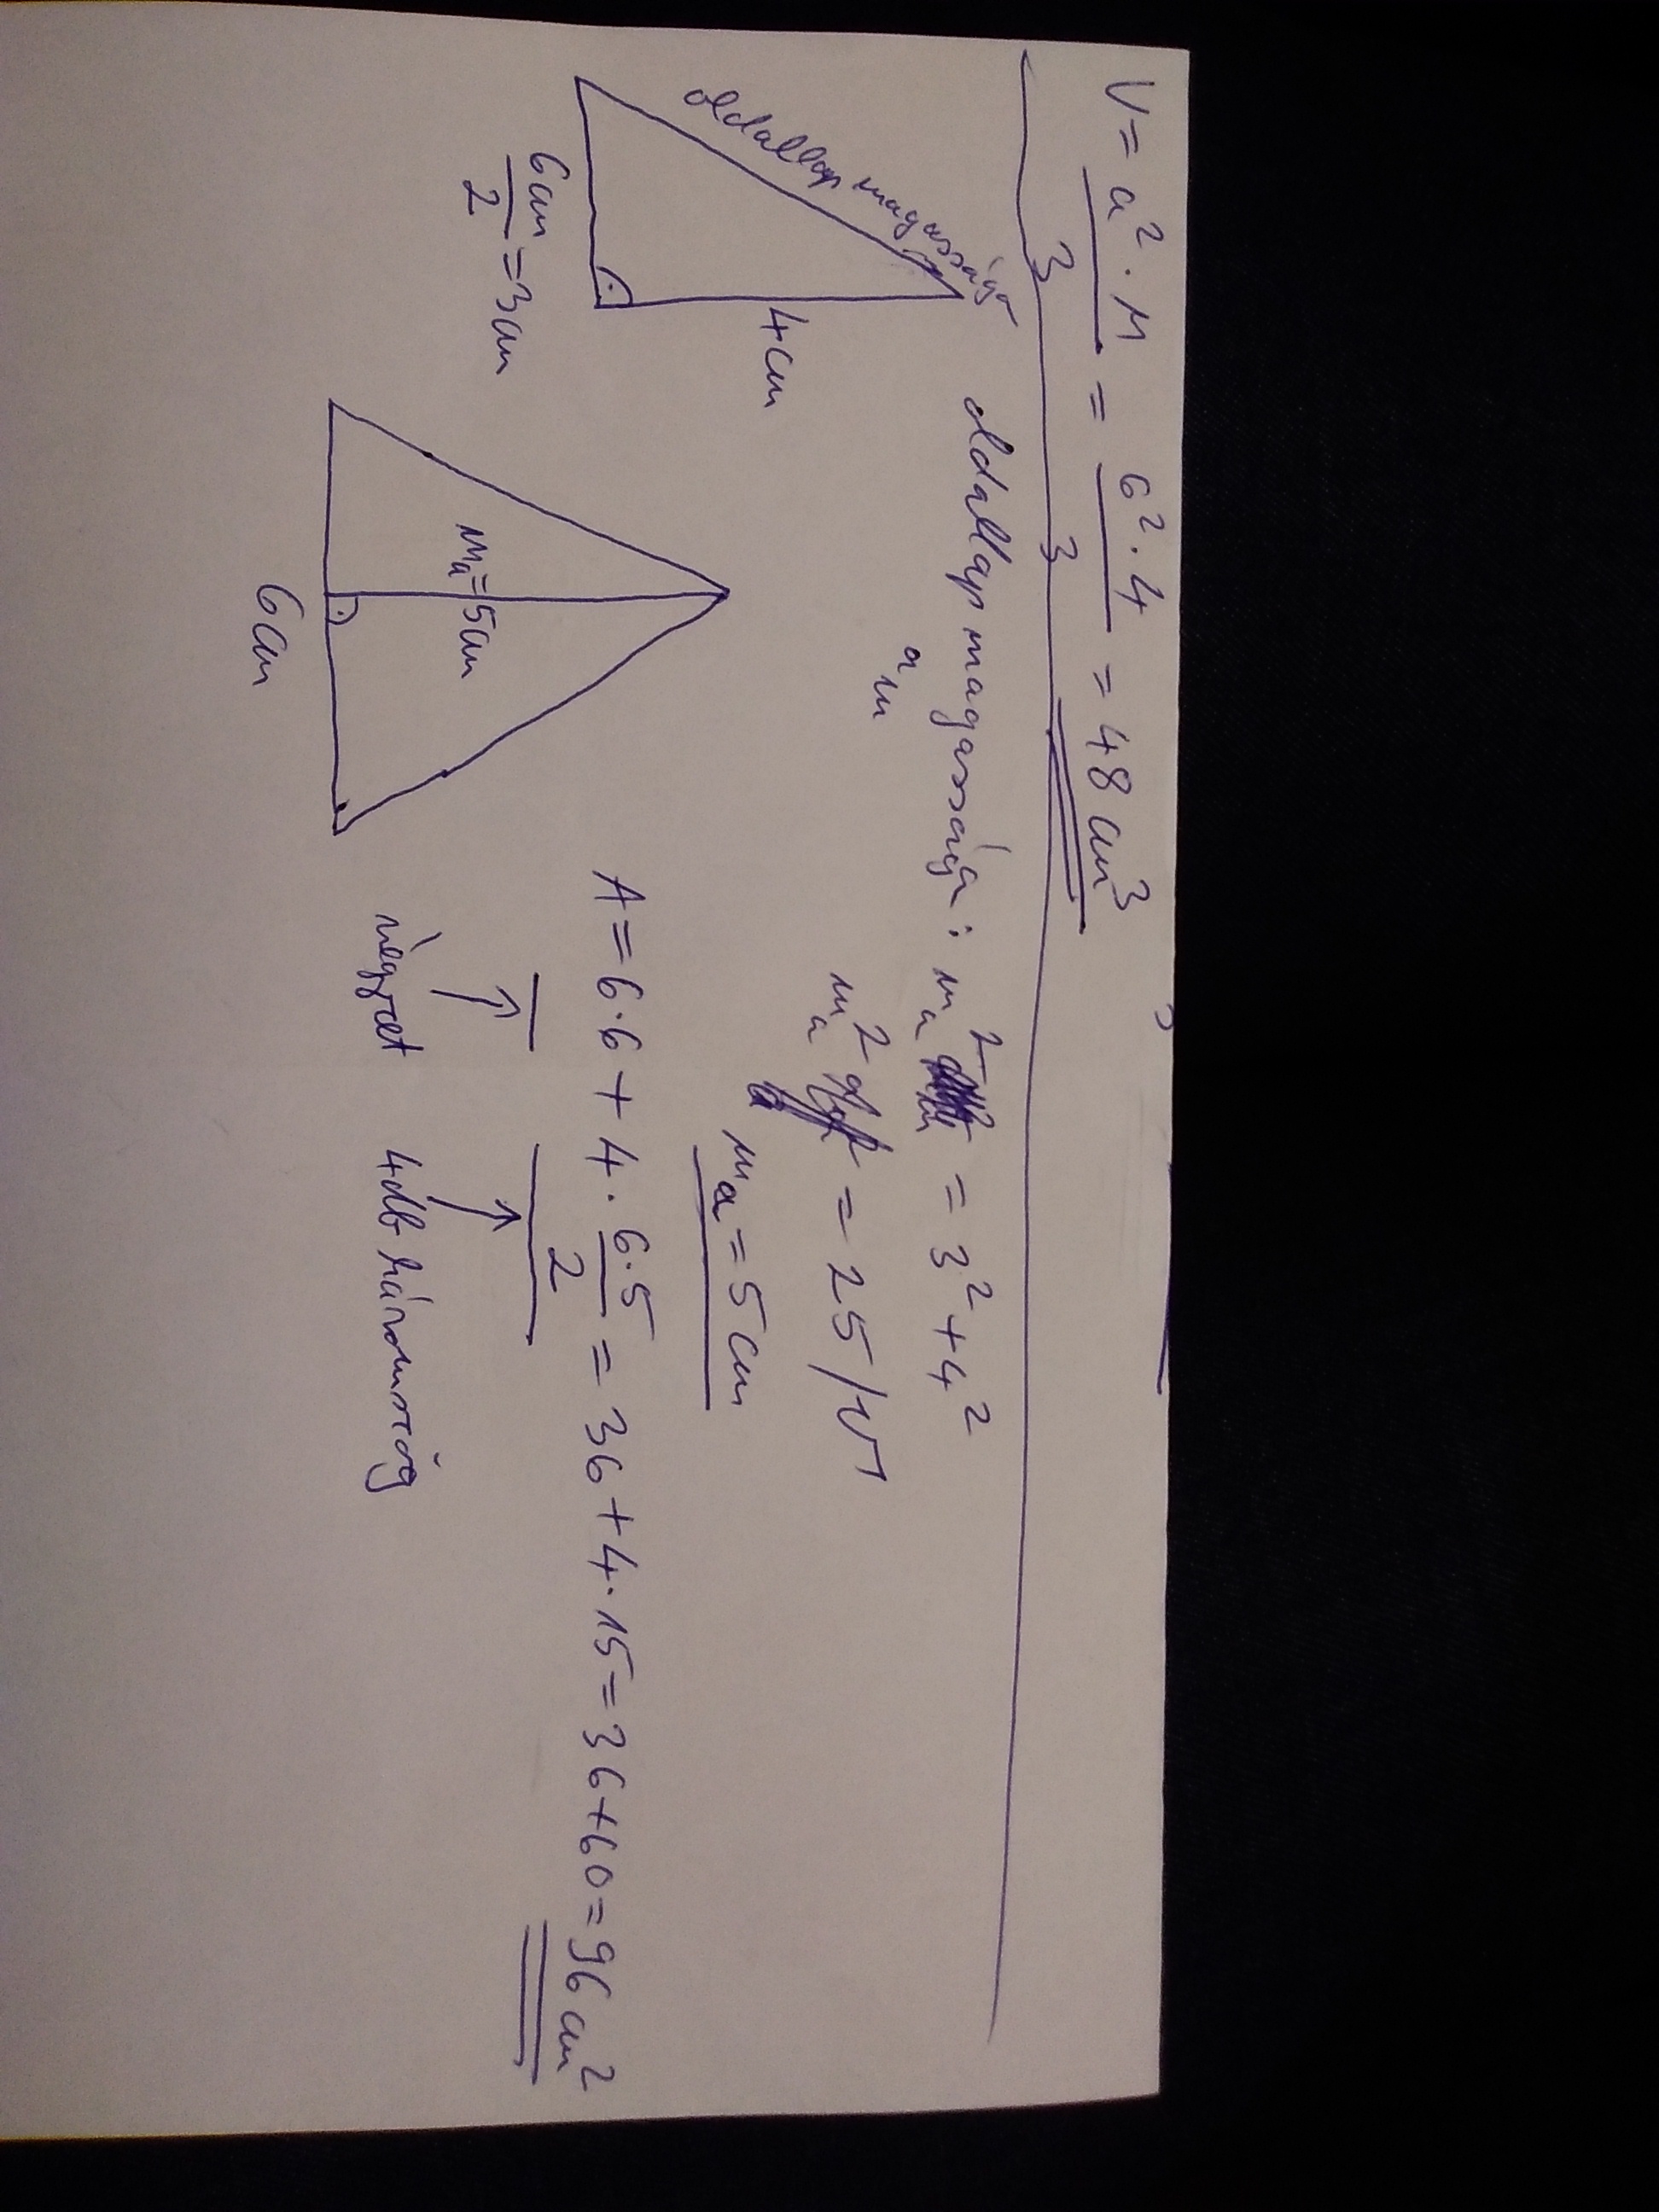 V = a² · M / 3 = 6² · 4 / 3 = 48 cm³
oldallap magassága: mₐ² = 3² + 4²
a m
mₐ² = 25 /√
mₐ = 5 cm
oldallap magassága
4cm
6cm / 2 = 3cm
mₐ = 5cm
6cm
A = 6·6 + 4 · 6·5 / 2 = 36 + 4 · 15 = 36 + 60 = 96 cm²
négyzet
4db háromszög